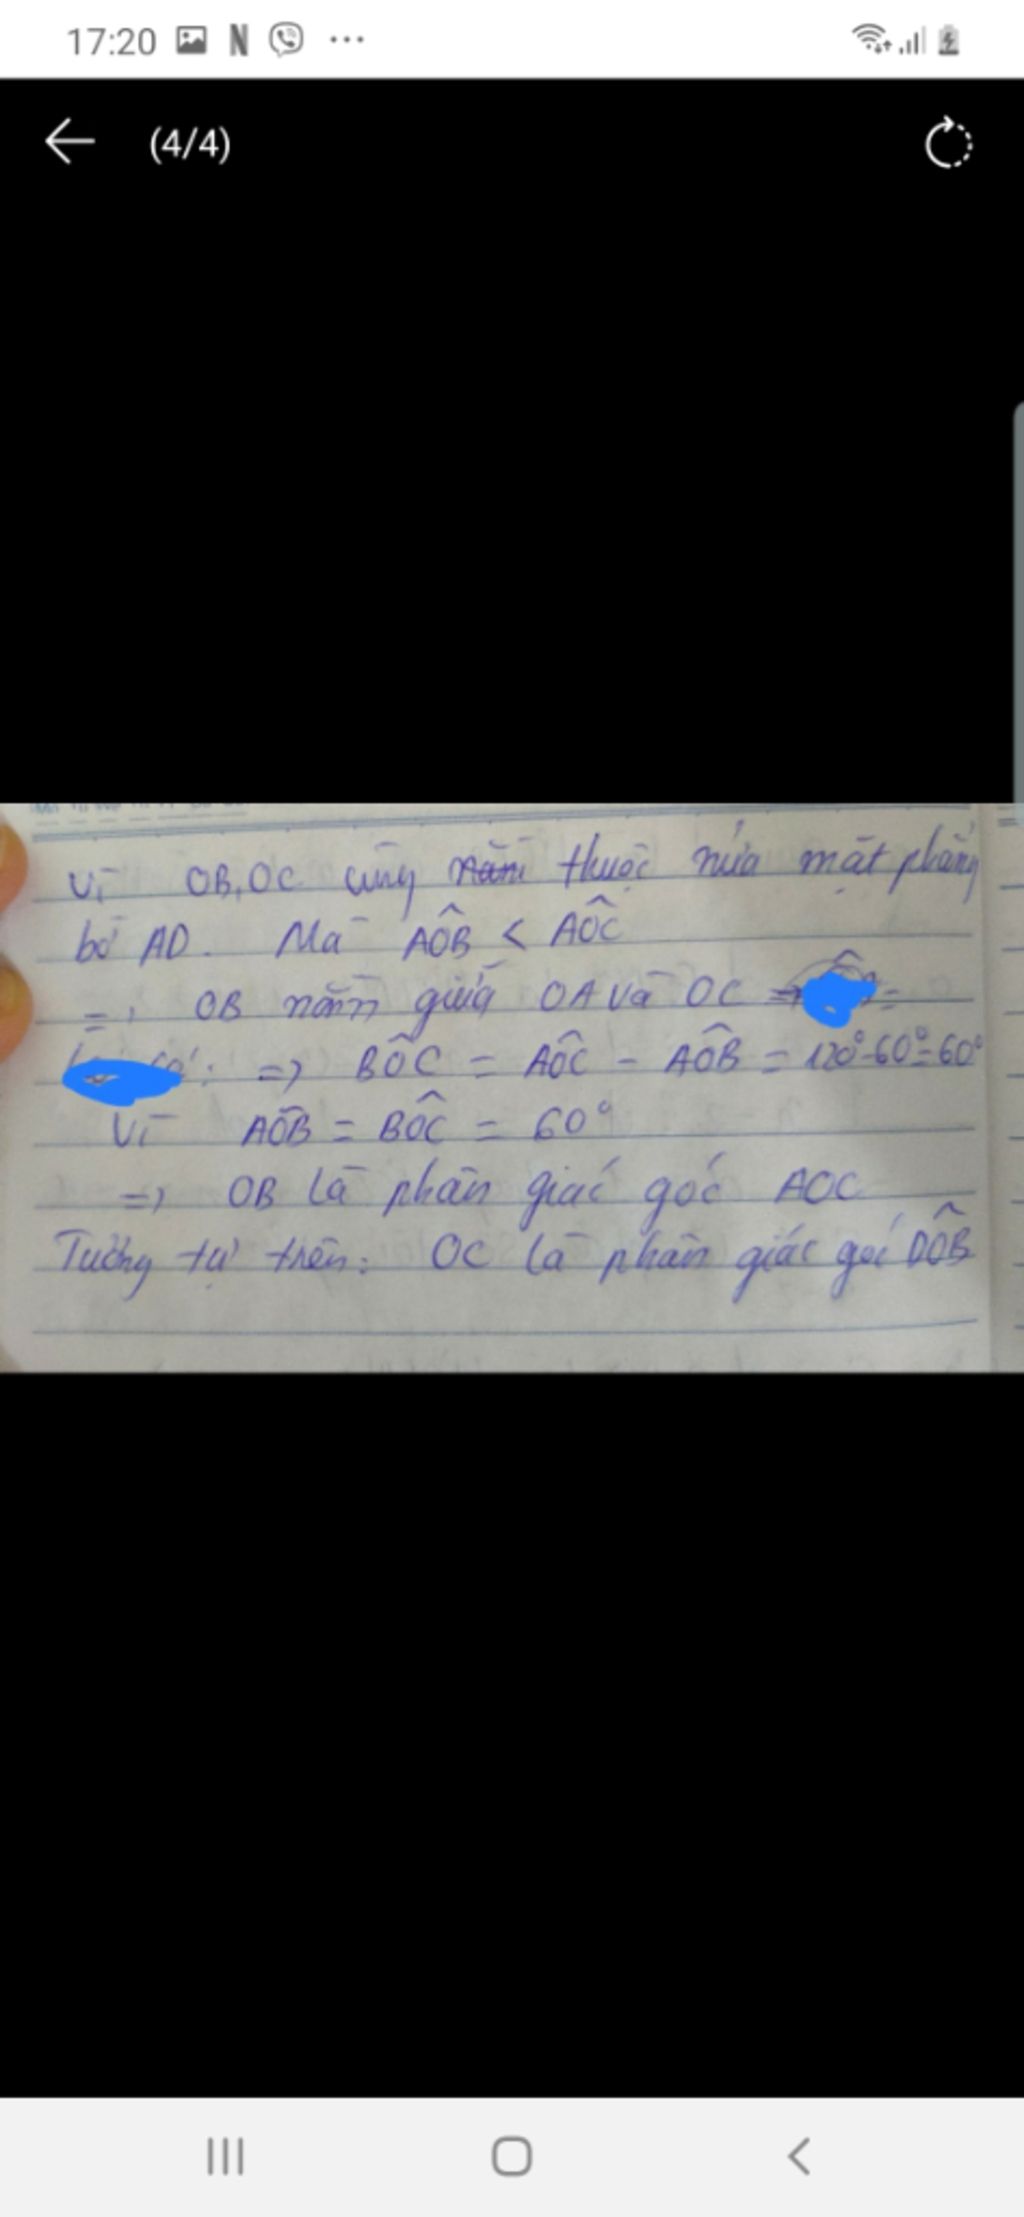 17:20
(4/4)
Vì OB, OC cùng nằm thuộc nửa mặt phẳng
bờ AD. Mà AÔB < AÔC
=> OB nằm giữa OA và OC =>
=> BÔC = AÔC - AÔB = 120° - 60° = 60°
Vì AÔB = BÔC = 60°
=> OB là phân giác góc AOC
Tương tự trên: OC là phân giác góc DÔB